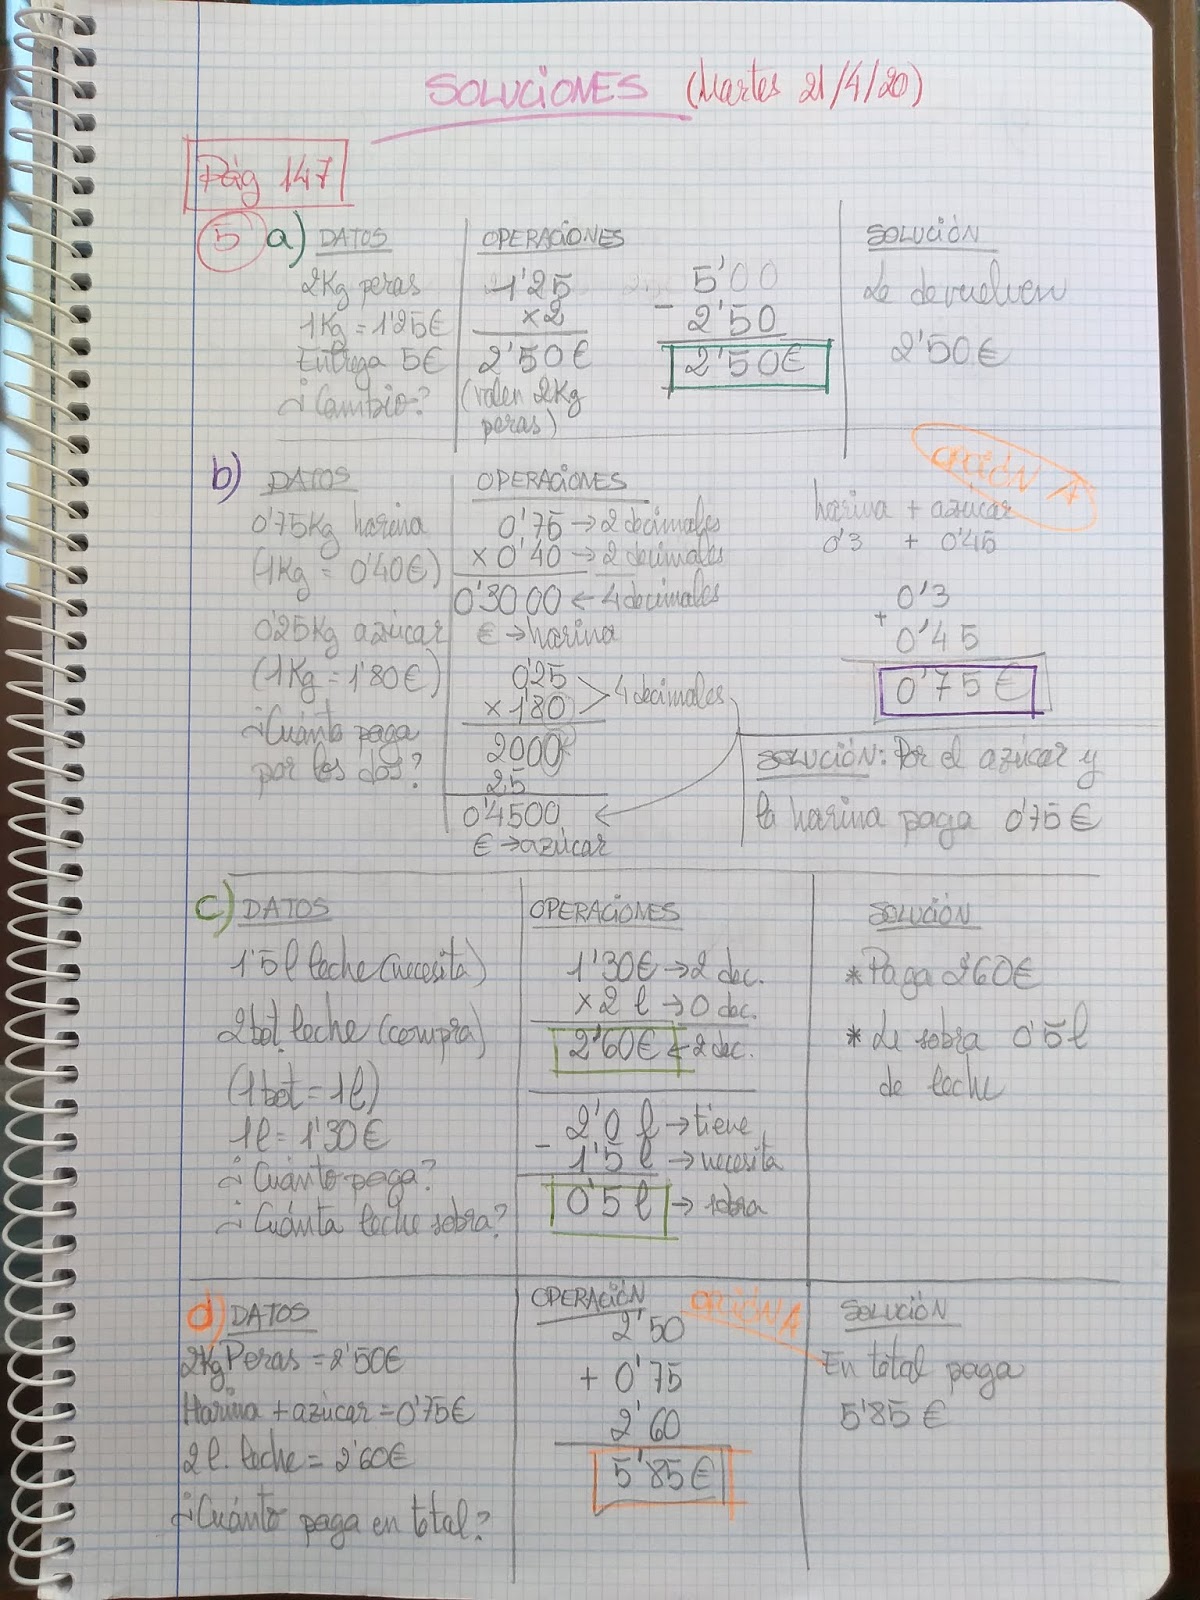 SOLUCIONES (Martes 21/4/20)
Pág 147
5 a) DATOS
2Kg peras
1Kg = 1'25€
Entrega 5€
¿Cambio?
OPERACIONES
1'25
x2
2'50€
(valen 2Kg
peras)
5'00
- 2'50
2'50€
SOLUCIÓN
Le devuelven
2'50€
b) DATOS
0'75Kg harina
(1Kg = 0'40€)
0'25Kg azúcar
(1Kg = 1'80€)
¿Cuánto paga
por los dos?
OPERACIONES
0'75 → 2 decimales
x 0'40 → 2 decimales
0'3000 ← 4 decimales
€ → harina
0'25
x 1'80 > 4 decimales
2000
25
0'4500 ←
€ → azúcar
OPCIÓN A
harina + azúcar
0'3 + 0'45
0'3
+ 0'45
0'75€
SOLUCIÓN: Por el azúcar y
la harina paga 0'75€
c) DATOS
1'5l leche (necesita)
2 bot. leche (compra)
(1bot = 1l)
1l = 1'30€
¿Cuánto paga?
¿Cuánta leche sobra?
OPERACIONES
1'30€ → 2 dec.
x2 l → 0 dec.
2'60€ ← 2 dec.
2'0 l → tiene
- 1'5 l → necesita
0'5 l → sobra
SOLUCIÓN
* Paga 2'60€
* Le sobra 0'5l
de leche
d) DATOS
2Kg Peras = 2'50€
Harina + azúcar = 0'75€
2l. leche = 2'60€
¿Cuánto paga en total?
OPERACIÓN OPCIÓN A
2'50
+ 0'75
2'60
5'85€
SOLUCIÓN
En total paga
5'85€